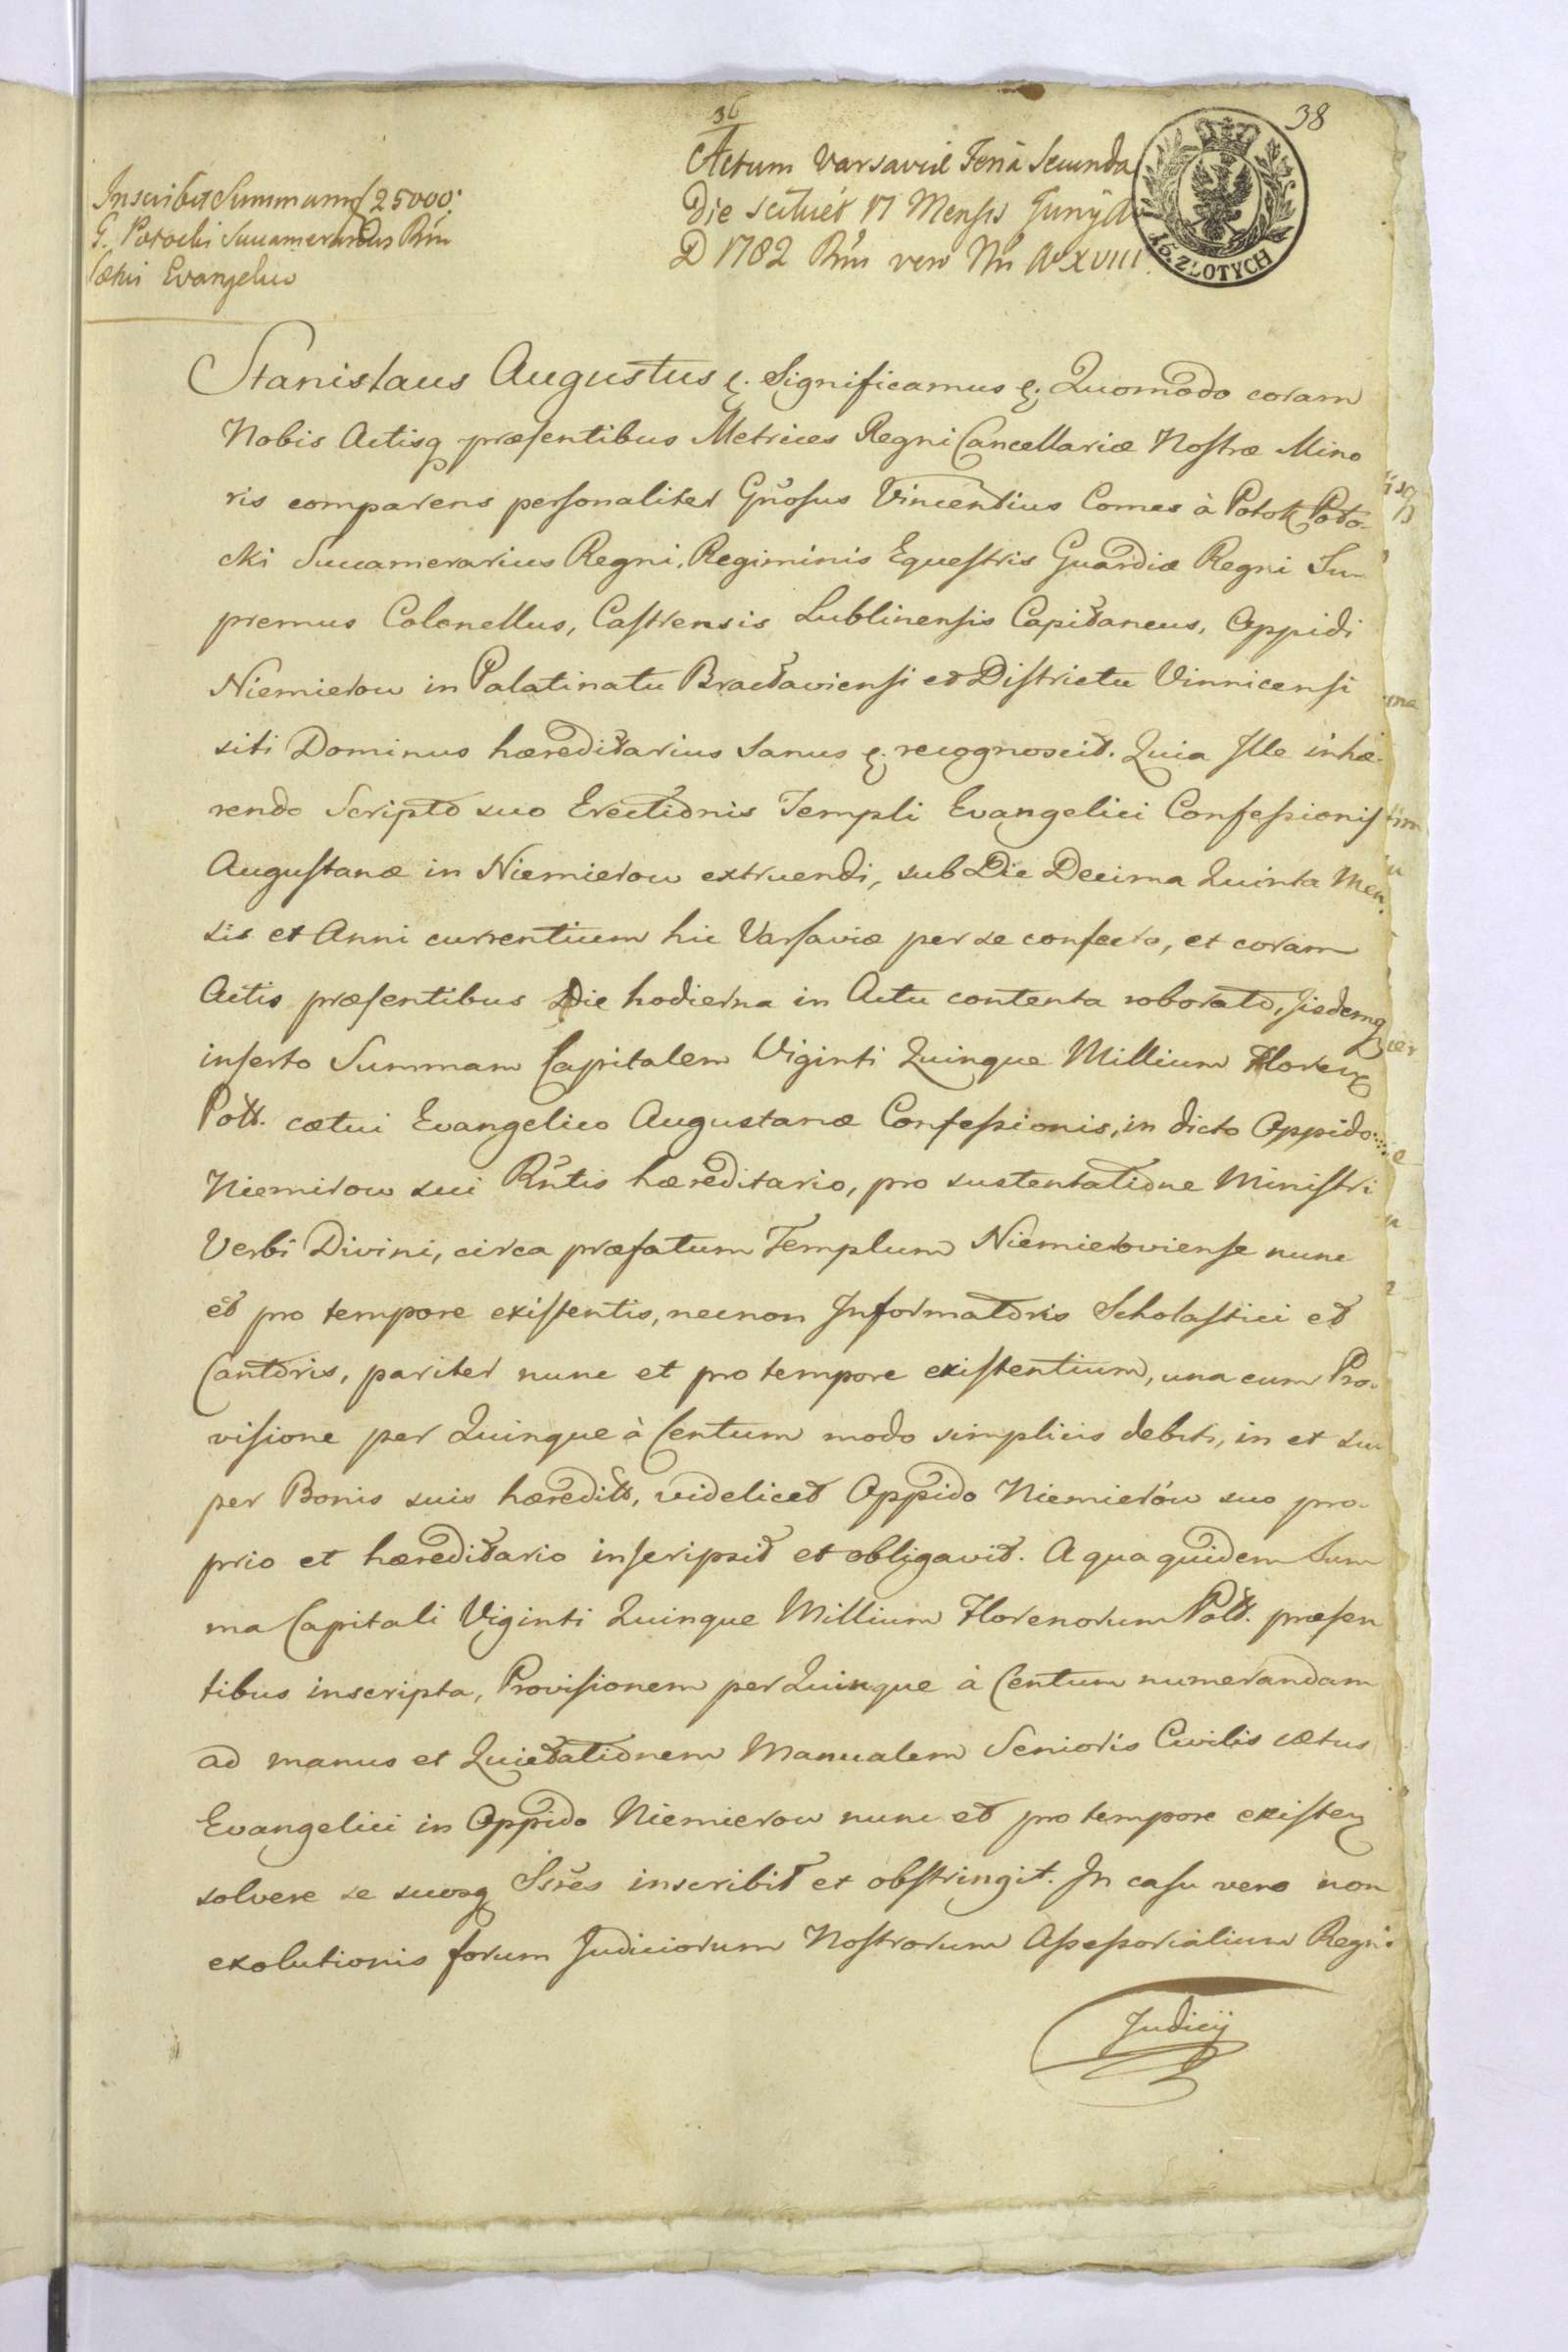 36
38
Actum Varsaviæ Feriâ Secunda
Die scilicét 17 Mensis Junÿ A
D 1782 Rñi vero Nri Ao XVIII.
15. ZŁOTYCH
Inscribit Summam f 25000:
G. Potocki Succamerarius Rñi
Cætui Evangelico
Stanislaus Augustus &. Significamus &. Quomodo coram
Nobis Actisq præsentibus Metrices Regni Cancellariæ Nostræ Mino
ris comparens personaliter Gñosus Vincentius Comes à Potok Poto-
cki Succamerarius Regni, Regiminis Equestris Guardiæ Regni Su-
premus Colonellus, Castrensis Lublinensis Capitaneus, Oppidi
Niemierow in Palatinatu Bractaviensi et Districtu Vinnicensi
siti Dominus hæreditarius sanus &. recognoscit. Quia Ille inhæ-
rendo Scripto suo Erectionis Templi Evangelici Confessionis
Augustanæ in Niemierow extruendi, sub Die Decima Quinta Men-
sis et Anni currentium hic Varsaviæ per se confecto, et coram
Actis præsentibus Die hodierna in Actu contenta roborato, iisdemq
inserto Summam Capitalem Viginti Quinque Millium Floren
Poll. cætui Evangelico Augustanæ Confessionis, in dicto Oppido
Niemirow sui Rñtis hæreditario, pro sustentatione Ministri
Verbi Divini, circa præfatum Templum Niemieroviense nunc
et pro tempore existentis, necnon Informatoris Scholastici et
Cantoris, pariter nunc et pro tempore existentium, una cum Pro-
visione per Quinque à Centum modo simplicis debiti, in et su
per Bonis suis hæredittt, videlicet Oppido Niemierów suo pro-
prio et hæreditario inscripsit et obligavit. A qua quidem Sum
ma Capitali Viginti Quinque Millium Florenorum Poll. præsen
tibus inscripta, Provisionem per Quinque à Centum numerandam
ad manus et Quietationem Manualem Senioris Civilis cætus
Evangelici in Oppido Niemierow nunc et pro tempore existen
solvere se suosq Ssres inscribit et obstringit. In casu vero non
exolutionis forum Judiciorum Nostrorum Assessorialium Regni
Judicÿ